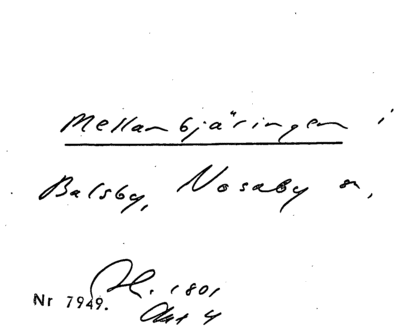 Mellanbjäringen i
Balsby, Nosaby sn,
Nr 7949. 1801
Akt 4